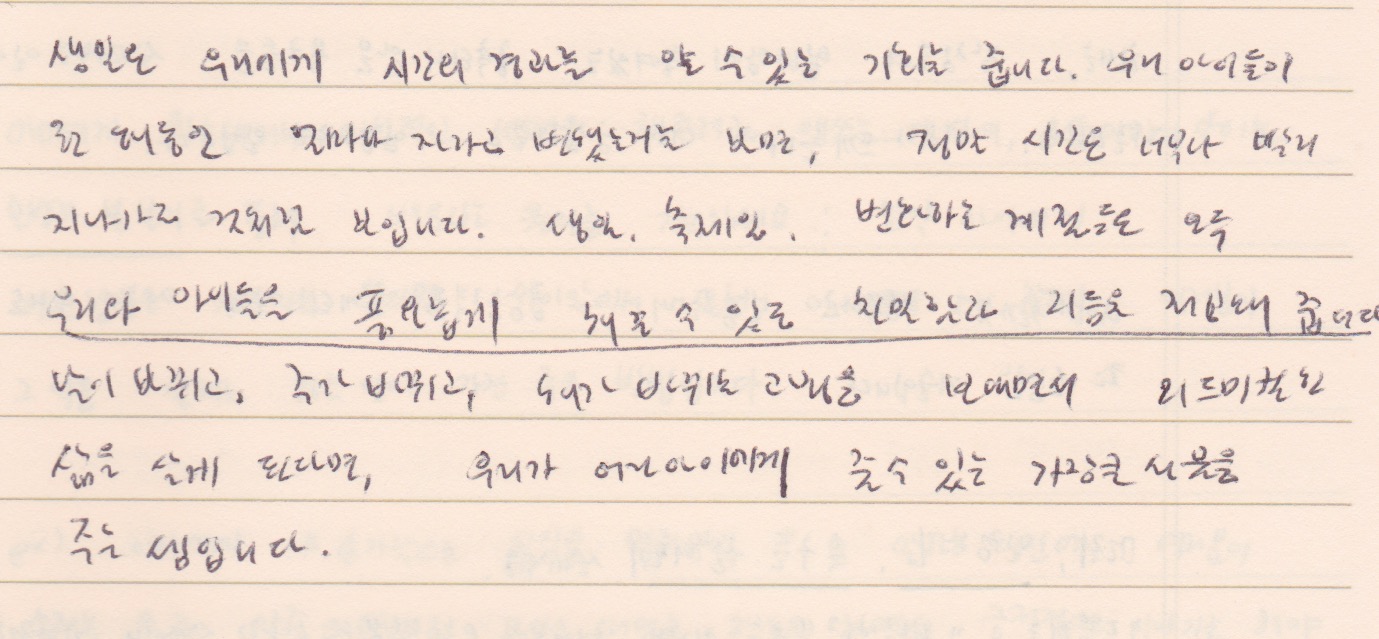 생일은 우리에게 시간의 경과를 알 수 있는 기회를 줍니다. 우리 아이들이
한 해 동안 얼마나 자라고 변했는지를 보면, 정말 시간은 너무나 빨리
지나가는 것처럼 보입니다. 생일, 축제일, 변화하는 계절들은 모두
우리와 아이들을 풍요롭게 해줄 수 있는 친밀함과 리듬을 제공해 줍니다
날이 바뀌고, 주가 바뀌고, 해가 바뀌는 고백을 보내면서 리드미컬한
삶을 살게 된다면, 우리가 어린아이에게 줄 수 있는 가장 큰 선물을
주는 셈입니다.